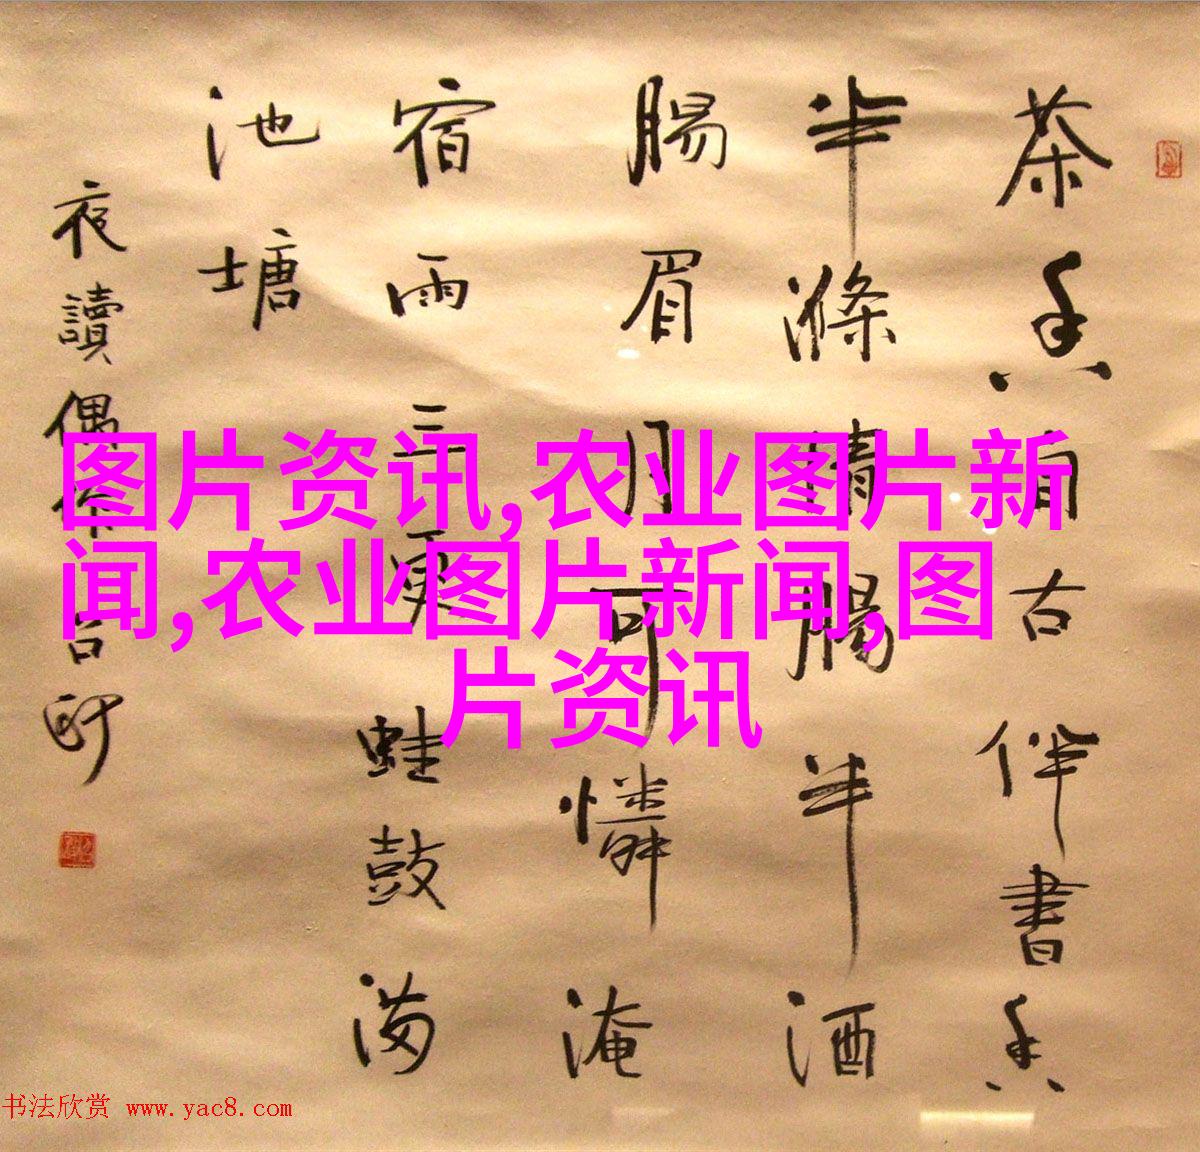 茶香自古伴書香
半滌情腸半酒
腸眉月可憐淹
宿雨三更蛙鼓满
池塘
夜讀偶作 呂
图片资讯,农业图片新
闻,农业图片新闻,图
片资讯
书法欣赏 www.yac8.com